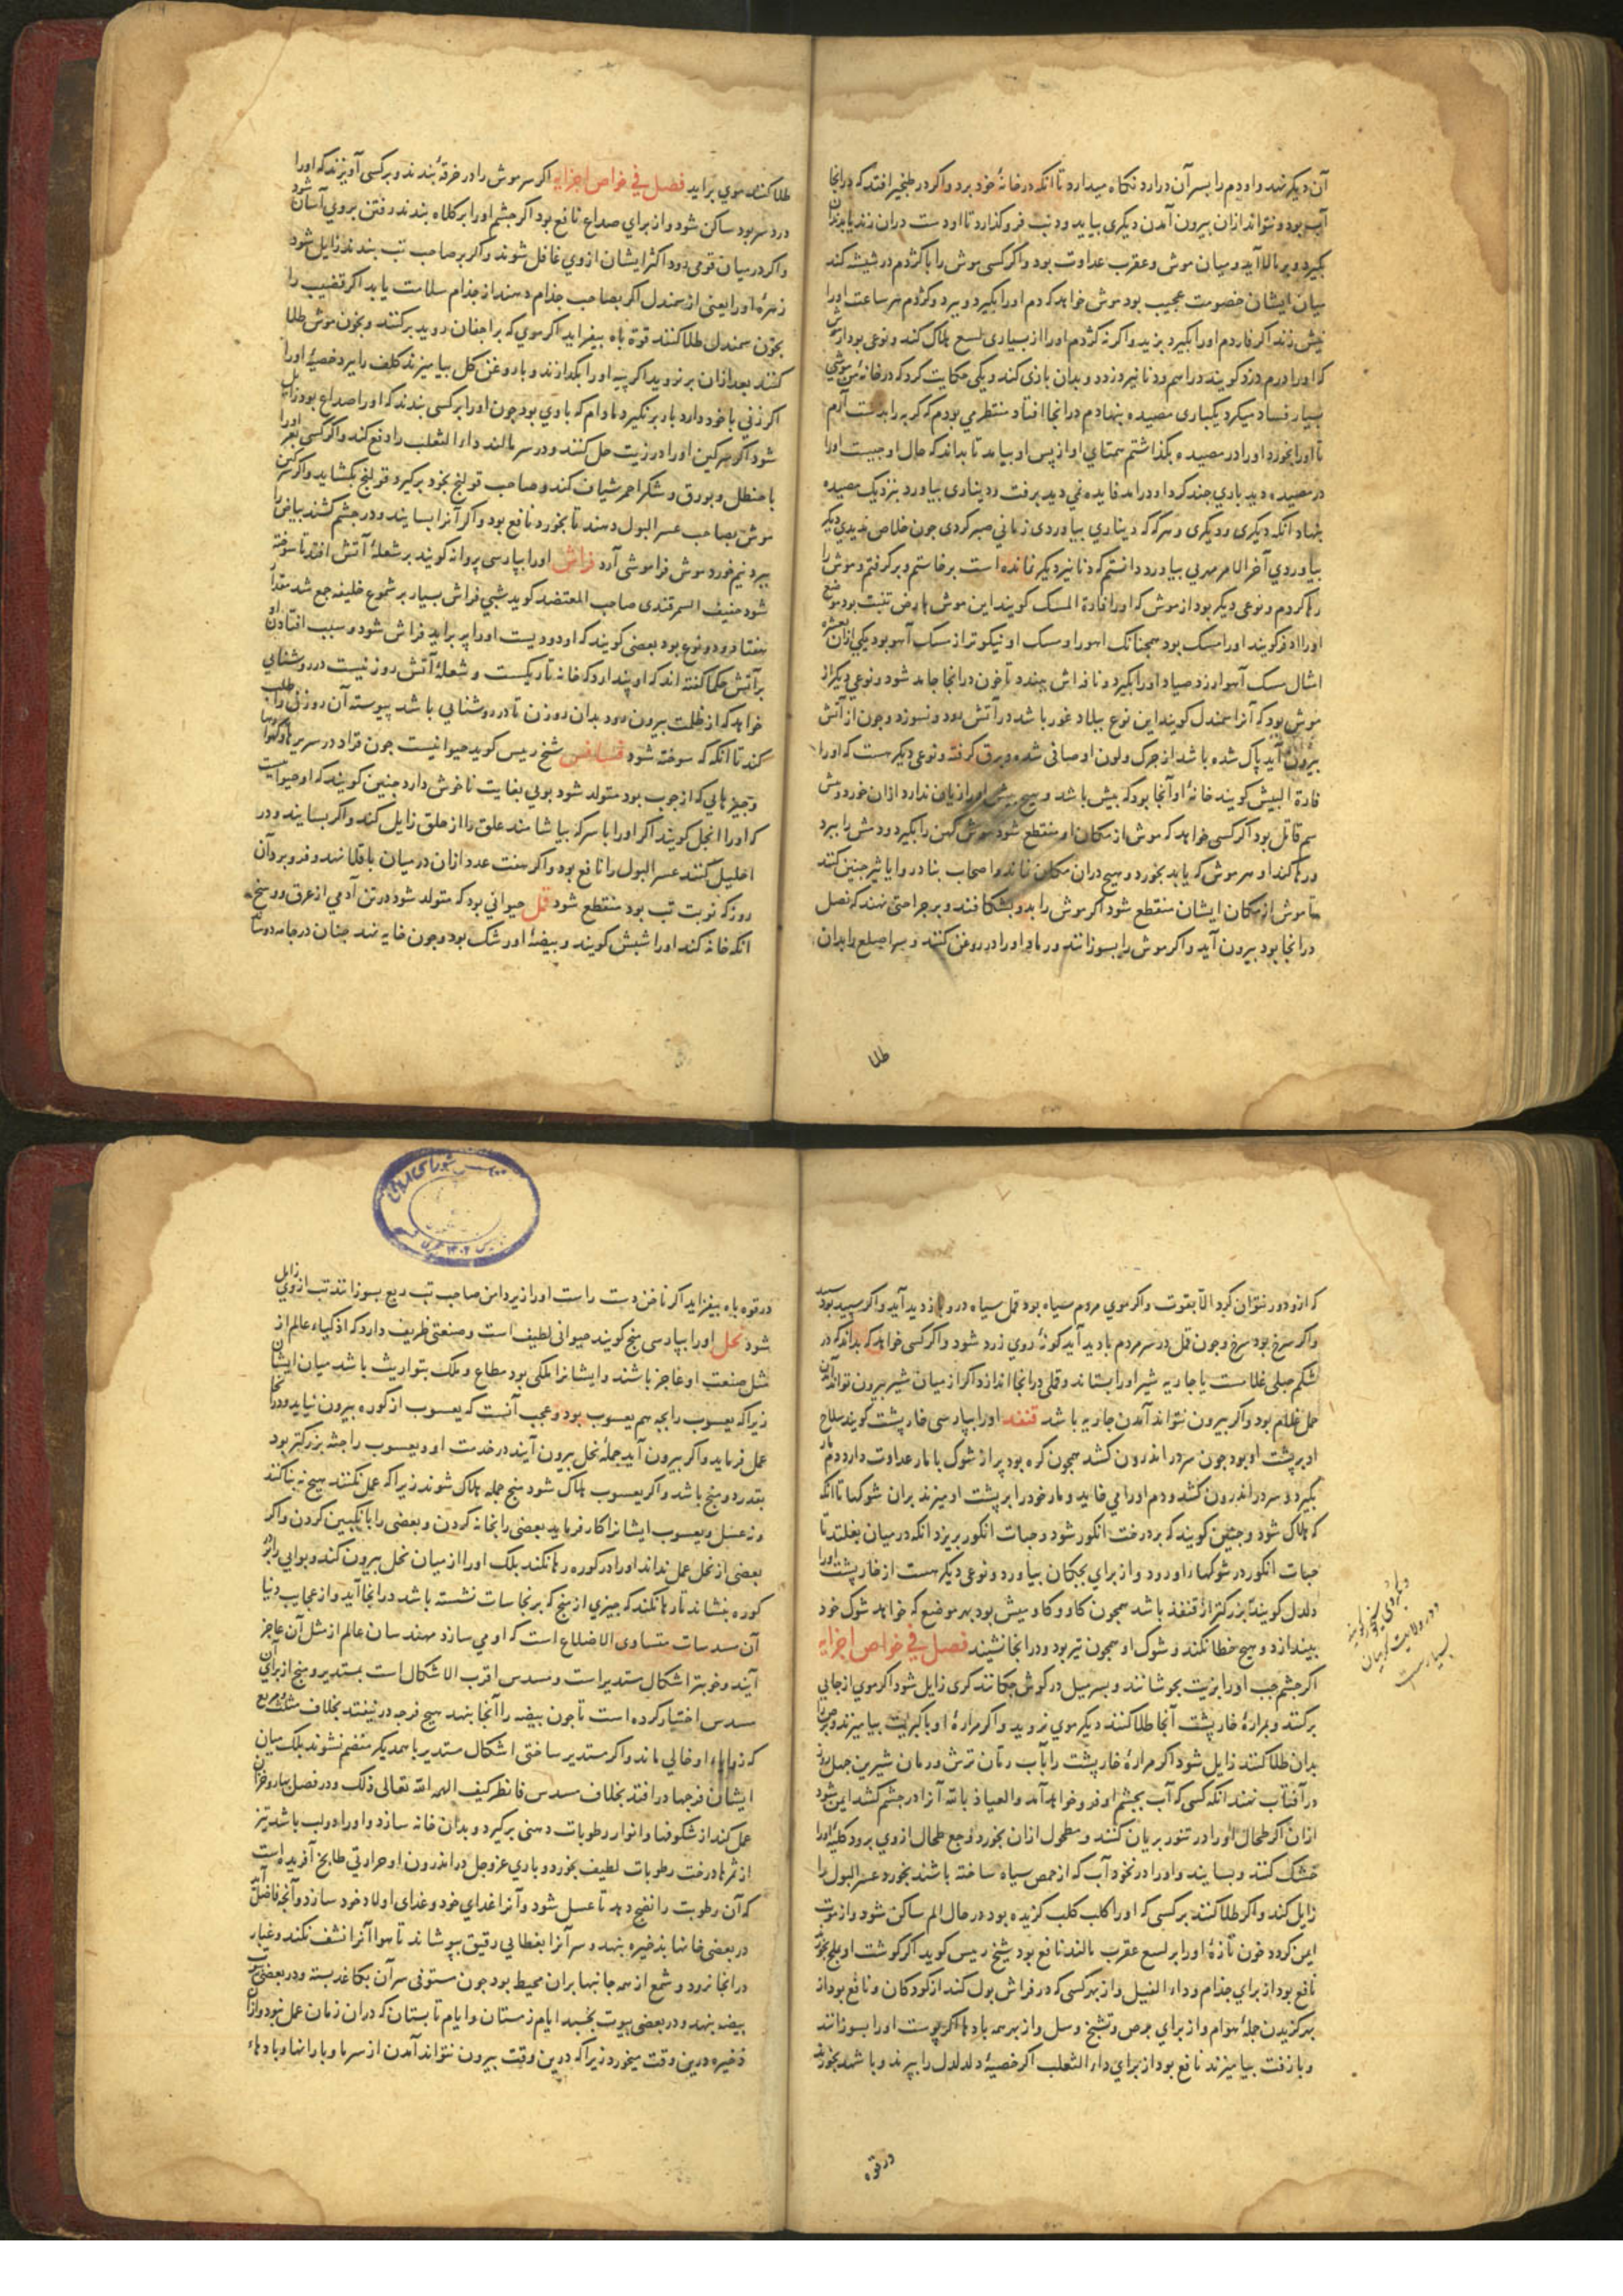 آن دیکر نهد و او دم را بسر آن درارد نکاه میدارد تا انکه در خانهٔ خود برد و اکر در طبخیر افتد که درانجا
آب بود و نتواند ازان بیرون آمدن دیکری بیاید و دنب فرو کذارد تا او دست دران زند یا بدندان
کیرد و بر بالا آید و میان موش و عقرب عداوت بود و اکر کسی موش را با کژدم در شیشه کند
میان ایشان خصومت عجیب بود موش خواهد که دم او را بکیرد و ببرد و کژدم هر ساعت او را
نیش زند اکر فار دم او را بکیرد بزید و اکر نه کژدم او را از بسیاری لسع هلاک کند و نوعی بود از موش
که او را درم دزد کویند دراهم و دنانیر دزدد و بدان بازی کند و یکی حکایت کرد که در خانهٔ من موشی
بسیار فساد میکرد یکباری مصیده بنهادم درانجا افتاد منتظر می بودم که کربه را بدست آرم
تا او را بخورد او را در مصیده بکذاشتم همتای او از پس او بیامد تا بداند که حال او چیست او را
در مصیده دید باری چند کرد او درامد فایده نمی دید برفت و دیناری بیاورد بنزدیک مصیده
بنهاد انکه دیکری و دیکری و هر که که دیناری بیاوردی زمانی صبر کردی چون خلاص ندیدی دیکر
بیاوردی آخر الامر مهری بیاورد دانستم که دنانیر دیکر نمانده است برخاستم و برکرفتم و موش را
رها کردم و نوعی دیکر بود از موش که او را فارة المسک کویند این موش بارض تبت بود موضع
او را اذفر کویند او را مسک بود همچنانک اهو را و مسک او نیکوتر از مسک آهو بود یکی ازان بعشره
امثال مسک آهو ارزد صیاد او را بکیرد و نافه اش ببندد تا خون درانجا جامد شود و نوعی دیکر از
موش بود که آنرا سمندل کویند این نوع ببلاد غور باشد در آتش بود و نسوزد و چون از آتش
بیرون آید پاک شده باشد از چرک و لون او صافی شده و برق کرفته و نوعی دیکر هست که او را
فارة البیش کویند خانهٔ او آنجا بود که بیش باشد و هیچ بیش او را زیان ندارد ازان خورد و بیش
سم قاتل بود اکر کسی خواهد که موش از مکان او منقطع شود موش کهن را بکیرد و دمش را ببرد
و رها کند او هر موش که یابد بخورد و هیچ دران مکان نماند و اصحاب بنادر و ایا ثیر چنین کنند
تا موش از مکان ایشان منقطع شود اکر موش را بدو بشکافند و بر جراحتی نهند که نصل
درانجا بود بیرون آید و اکر موش را بسوزانند و رماد او را در روغن کنند و سر اصلع را بدان
طلا
طلا کنند موی براید فصل فی خواص اجزایه اکر سر موش را در خرقهٔ بندند و بر کسی آویزند که او را
درد سر بود ساکن شود و از برای صداع نافع بود اکر چشم او را بر کلاه بندند رفتن بروی آسان شود
و اکر در میان قومی رود اکثر ایشان از وی غافل شوند و اکر بر صاحب تب بندند زایل شود
زهرهٔ او را یعنی از سمندل اکر بصاحب جذام دهند از جذام سلامت یابد اکر قضیب را
بخون سمندل طلا کنند قوة باه بیفزاید اکر موی که بر اجفان روید برکنند و بخون موش طلا
کنند بعد ازان برنروید اکر پیه او را بکدازند و با روغن کل بیامیزند کلف را ببرد خصیهٔ او را
اکر زنی با خود دارد بار برنکیرد مادام که با وی بود چون او را بر کسی بندند که او را صداع بود زایل
شود اکر سرکین او را در زیت حل کنند و در سر مالند دار الثعلب را دفع کند و اکر کسی بعر او را
با حنظل و بورق و شکر احمر شیاف کند و صاحب قولنج بخود برکیرد قولنج بکشاید و اکر سرکین
موش بصاحب عسر البول دهند تا بخورد نافع بود و اکر آنرا بسایند و در چشم کشند بیاض را
ببرد نیم خورد موش فراموشی آرد فراش او را بپارسی پروانه کویند بر شعلهٔ آتش افتد تا سوخته
شود حنیف السمرقندی صاحب المعتضد کوید شبی فراش بسیار بر شموع خلیفه جمع شد مقدار
هفتاد و دو نوع بود بعضی کویند که او دودیست او را پر براید فراش شود و سبب افتادن او
بر آتش حکما کفته اند که او پندارد که خانه تاریکست و شعلهٔ آتش روزنیست در روشنایی
خواهد که از ظلمت بیرون رود بدان روزن تا در روشنایی باشد پیوسته آن روزنی را طلب
کند تا انکه که سوخته شود فسافس شیخ رییس کوید حیوانیست چون قراد در سریرها و
و چیزهایی که از چوب بود متولد شود بویی بغایت ناخوش دارد چنین کویند که او حیوانیست
که او را انجل کویند اکر او را با سرکه بیاشامند علق را از حلق زایل کند و اکر بسایند و در
احلیل کنند عسر البول را نافع بود و اکر هفت عدد ازان در میان باقلا نهد و فرو برد آن
روز که نوبت تب بود منقطع شود قمل حیوانی بود که متولد شود در تن آدمی از عرق و وسخ
انکه خانه کند او را شپش کویند و بیضهٔ او رشک بود و چون خایه نهد چنان در جامه دوسد
که ازو دور نتوان کرد الا بقوت و اکر موی مردم سیاه بود قمل سیاه درو بازدید آید و اکر سپید بود سپید
و اکر سرخ بود سرخ و چون قمل در سر مردم بادید آید کونهٔ روی زرد شود و اکر کسی خواهد که بداند که در
شکم حبلی غلامست یا جاریه شیر او را بستاند و قملی درانجا اندازد اکر از میان شیر بیرون تواند آمدن
حمل غلام بود و اکر بیرون نتواند آمدن جاریه باشد قنفد او را بپارسی خارپشت کویند سلاح
او بر پشت او بود چون سر در اندرون کشد همچون کره بود پر از شوک با مار عداوت دارد دم مار
بکیرد و سر در اندرون کشد و دم او را می خاید و مار خود را بر پشت او میزند بران شوکها تا انکه
که هلاک شود و چنین کویند که بر درخت انکور شود و حبات انکور بریزد انکه در میان بغلتد تا
حبات انکور در شوکهاء او رود و از برای بچکان بیاورد و نوعی دیکر هست از خارپشت او را
دلدل کویند بزرکتر از قنفذ باشد همچون کاو و کاومیش بود بهر موضع که خواهد شوک خود
بیندازد و هیچ خطا نکند و شوک او همچون تیر بود و درانجا نشیند فصل فی خواص اجزایه
اکر چشم چپ او را بزیت بجوشانند و بسر میل در کوش چکانند کری زایل شود اکر موی از جایی
برکنند و بمرارهٔ خارپشت آنجا طلا کنند دیکر موی نروید و اکر مرارهٔ او با کبریت بیامیزند و برص را
بدان طلا کنند زایل شود اکر مرارهٔ خارپشت را بآب رمان ترش و رمان شیرین چهل روز
در آفتاب نهند انکه کسی که آب بچشم او فرو خواهد آمد والعیاذ بالله آنرا در چشم کشد ایمن شود
ازان اکر طحال او را در تنور بریان کنند و مطحول ازان بخورد وجع طحال از وی برود کلیهٔ او را
خشک کنند و بسایند و او را در نخود آب که از حمص سیاه ساخته باشند بخورد عسر البول را
زایل کند و اکر طلا کنند بر کسی که او را کلب کلب کزیده بود در حال الم ساکن شود و از موت
ایمن کردد خون تازهٔ او را بر لسع عقرب مالند نافع بود شیخ رییس کوید اکر کوشت او بملح بخورند
نافع بود از برای جذام و داء الفیل و از بهر کسی که در فراش بول کند از کودکان و نافع بود از
بهر کزیدن جملهٔ هوام و از برای برص و تشنج و سل و از بهر همه بادها اکر پوست او را بسوزانند
و با زفت بیامیزند نافع بود از برای دار الثعلب اکر خصیهٔ دلدل را ببرند و با شهد بخورند
در قوه
و در ولایت
بسیارست
در قوه باه بیفزاید اکر ناخن دست راست او را زیر دامن صاحب تب ربع بسوزانند تب از وی زایل
شود نحل او را بپارسی منج کویند حیوانی لطیف است و صنعتی ظریف دارد که اذکیاء عالم از
مثل صنعت او عاجز باشند و ایشانرا ملکی بود مطاع و ملک بتواریث باشد میان ایشان
زیرا که یعسوب را بچه هم یعسوب بود و عجب آنست که یعسوب از کوره بیرون نیاید و درانجا
عمل فرماید و اکر بیرون آید جملهٔ نحل بیرون آیند در خدمت او و یعسوب را جثه بزرکتر بود
بقدر دو منج باشد و اکر یعسوب هلاک شود منج جمله هلاک شوند زیرا که عمل نکنند هیچ نه بنا کنند
و نه عسل و یعسوب ایشانرا کار فرماید بعضی را بخانه کردن و بعضی را بانکبین کردن و اکر
بعضی از نحل عمل نداند او را در کوره رها نکند بلک او را از میان نحل بیرون کند و بوابی را بر در
کوره بنشاند تا رها نکند که چیزی از منج که بر نجاسات نشسته باشد درانجا آید و از عجایب دنیا
آن مسدسات متساوی الاضلاع است که او می سازد مهندسان عالم از مثل آن عاجز
آیند و خوبتر اشکال مستدیر است و مسدس اقرب الاشکال است بمستدیر و منج از برای آن
مسدس اختیار کرده است تا چون بیضه را آنجا بنهد هیچ فرجه درنیفتد بخلاف مثلث و مربع
که زوایاء او خالی ماند و اکر مستدیر ساختی اشکال مستدیر با همدیکر منضم نشوند بلک میان
ایشان فرجها درافتد بخلاف مسدس فانظر کیف الهمه الله تعالی ذلک و در فصل بهار و خزان
عمل کند از شکوفها و انوار رطوبات دهنی برکیرد و بدان خانه سازد و او را دو لب باشد تیز
از ثمرها درخت رطوبات لطیف بخورد و باری عز و جل در اندرون او حرارتی طابخ آفریده است
که آن رطوبت را نضج دهد تا عسل شود و آنرا غدای خود و غدای اولاد خود سازد و آنچه فاضل آید
در بعضی خانها بذخیره بنهد و سر آنرا بغطایی رقیق بپوشاند تا هوا آنرا نشف نکند و غبار
درانجا نرود و شمع از همه جانبها بران محیط بود چون ستوفی سر آن بکاغد بسته و در بعضی بیوت
بیضه بنهد و در بعضی بیوت بخسبد ایام زمستان و ایام تابستان که دران زمان عمل نبود و ازان
ذخیره درین وقت میخورد زیرا که درین وقت بیرون نتواند آمدن از سرما و بارانها و بادهاء